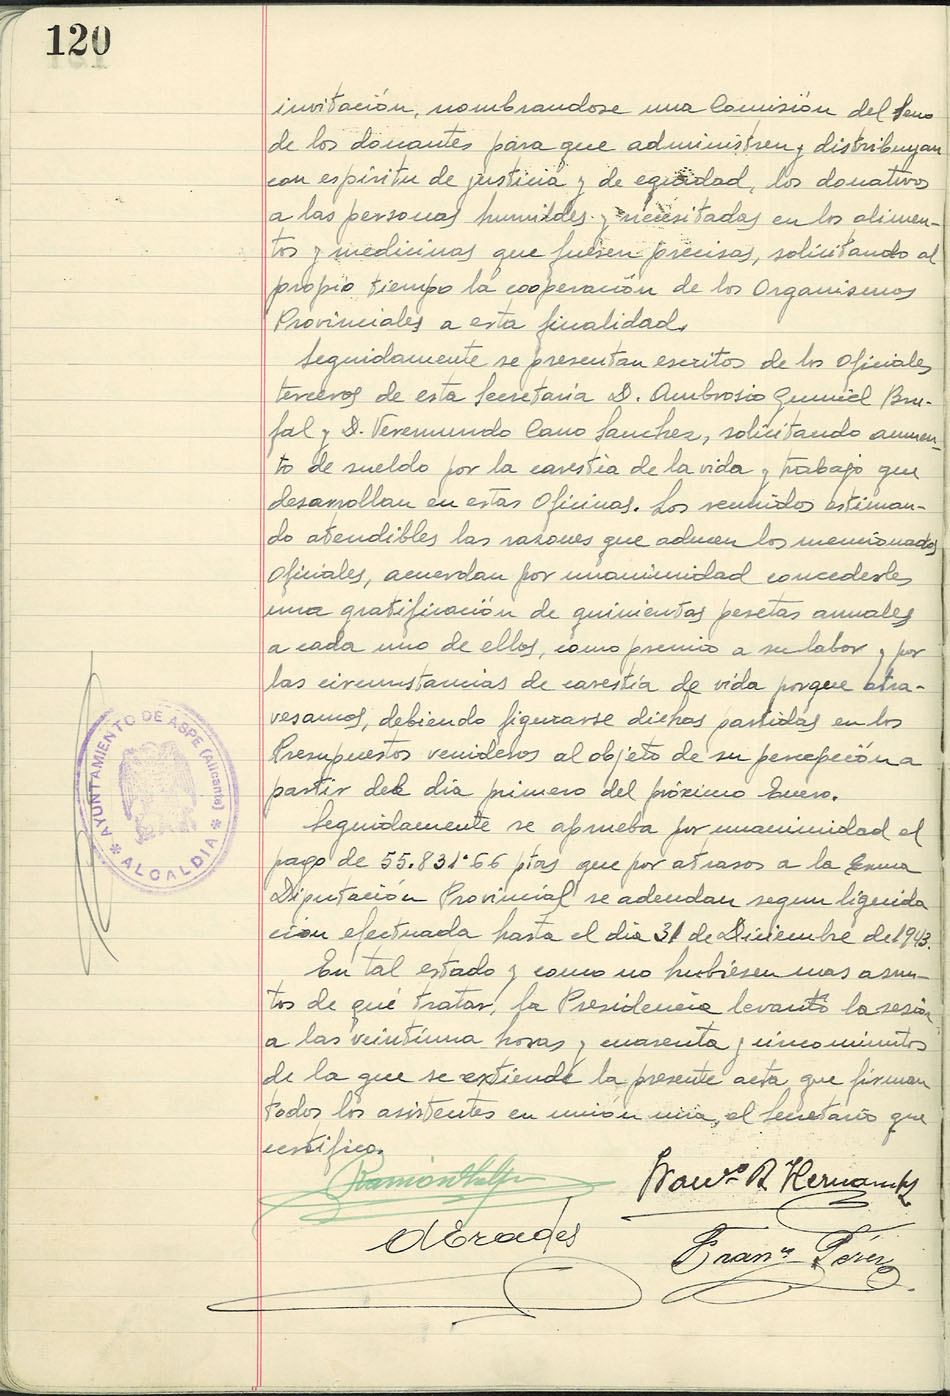 120
invitación, nombrandose una Comisión del Seno
de los donantes para que administren y distribuyan
con espiritu de justicia y de equidad, los donativos
a las personas humildes y necesitadas en los alimen-
tos y medicinas que fuesen precisas, solicitando al
propio tiempo la cooperación de los Organismos
Provinciales a esta finalidad.
Seguidamente se presentan escritos de los Oficiales
terceros de esta Secretaria D. Ambrosio Gumiel Bru-
fal y D. Veremundo Cano Sanchez, solicitando aumen-
to de sueldo por la carestia de la vida y trabajo que
desarrollan en estas Oficinas. Los reunidos estiman-
do atendibles las razones que aducen los mencionados
Oficiales, acuerdan por unanimidad concederles
una gratificación de quinientas pesetas anuales
a cada uno de ellos, como premio a su labor y por
las circunstancias de carestía de vida porque atra-
vesamos, debiendo figurarse dichas partidas en los
Presupuestos venideros al objeto de su percepción a
partir del dia primero del próximo Enero.
Seguidamente se aprueba por unanimidad el
pago de 55.831'66 ptas que por atrasos a la Exma
Diputación Provincial se adeudan segun liquida
cion efectuada hasta el dia 31 de Diciembre de 1943.
En tal estado y como no hubiesen mas asun-
tos de qué tratar, la Presidencia levantó la sesión
a las veintiuna horas y cuarenta y cinco minutos
de la que se extiende la presente acta que firman
todos los asistentes en unión mia, el Secretario que
certifico.
AYUNTAMIENTO DE ASPE (Alicante)
* ALCALDIA *
Ramón
R. Hernandez
A Erades
Fran.co Pérez